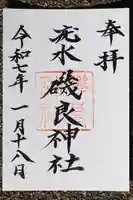 奉拝
疣水
磯良神社
令和七年
一月十八日